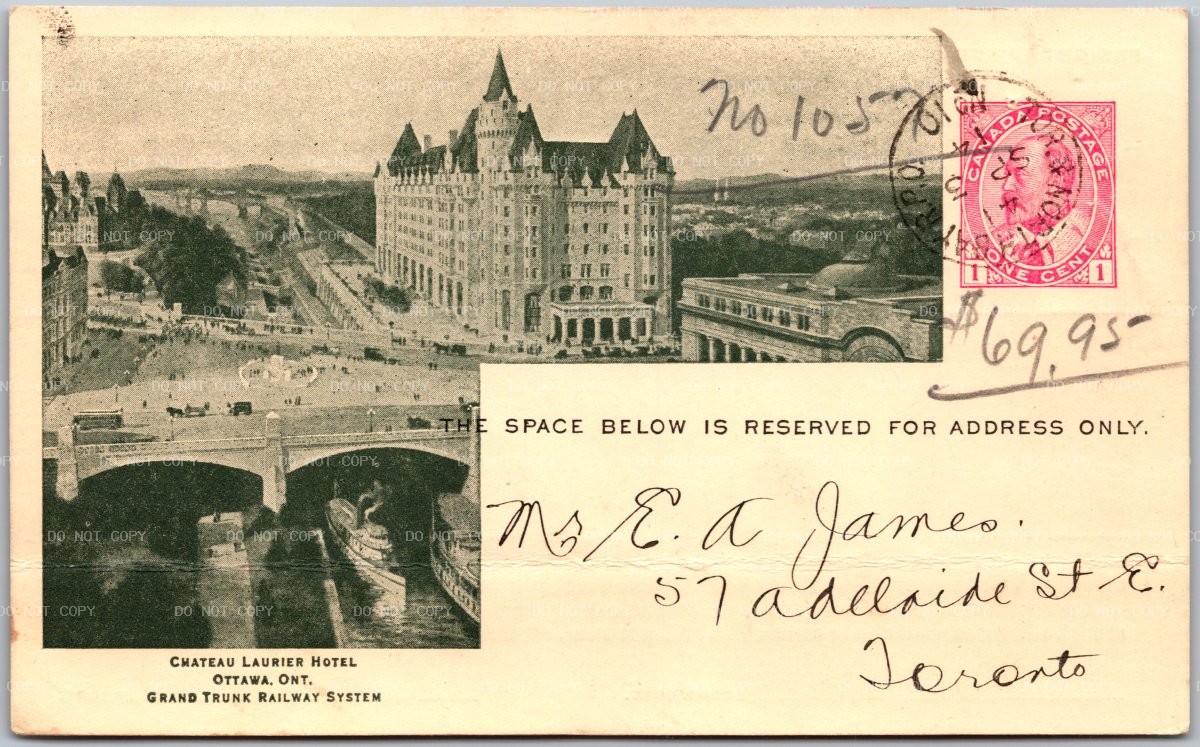 No 105
CANADA POSTAGE
ONE CENT
1 1
$69.95
THE SPACE BELOW IS RESERVED FOR ADDRESS ONLY.
Mr E. A James.
57 Adelaide St E.
Toronto
CHATEAU LAURIER HOTEL
OTTAWA, ONT.
GRAND TRUNK RAILWAY SYSTEM
DO NOT COPY